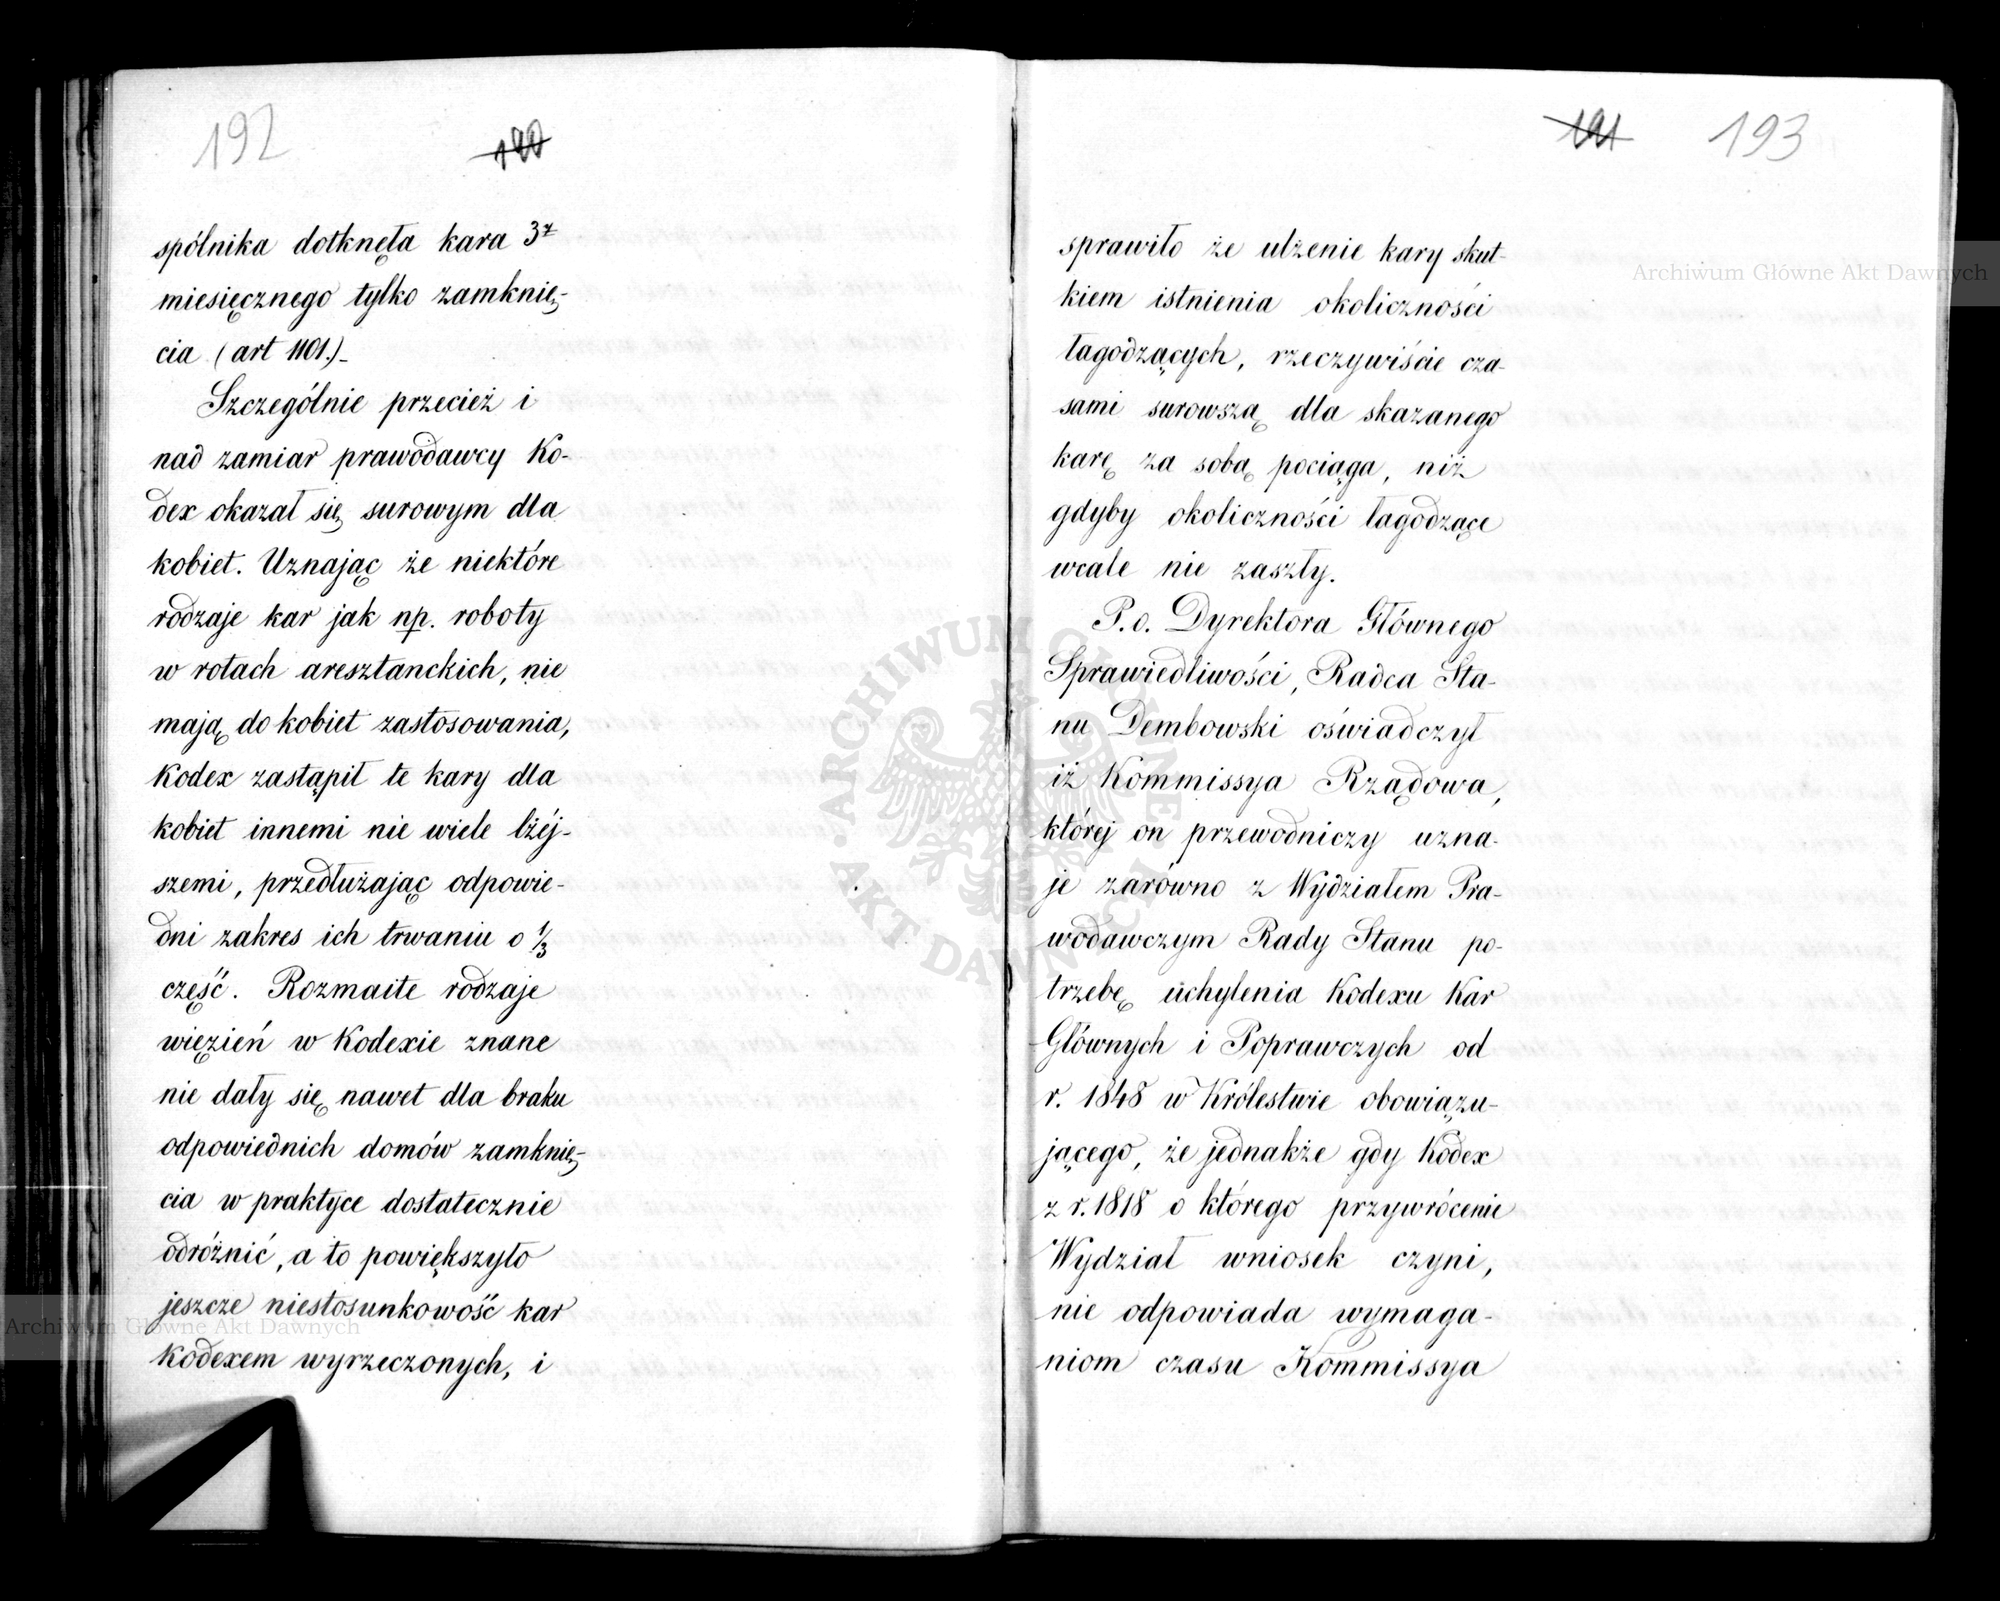 192
190
spólnika dotknęła kara 3z
miesięcznego tylko zamknię-
cia (art 1101.)_
Szczególnie przecież i
nad zamiar prawodawcy Ko-
dex okazał się surowym dla
kobiet. Uznając że niektóre
rodzaje kar jak np. roboty
w rotach aresztanckich, nie
mają do kobiet zastosowania,
Kodex zastąpił te kary dla
kobiet innemi nie wiele lżéj-
szemi, przedłużając odpowie-
dni zakres ich trwaniu o 1/3
część. Rozmaite rodzaje
więzień w Kodexie znane
nie dały się nawet dla braku
odpowiednich domów zamknię-
cia w praktyce dostatecznie
odróżnić, a to powiększyło
jeszcze niestosunkowość kar
Kodexem wyrzeczonych, i
191
193
sprawiło że ulżenie kary skut-
kiem istnienia okoliczności
łagodzących, rzeczywiście cza-
sami surowszą dla skazanego
karę za sobą pociąga, niż
gdyby okoliczności łagodzące
wcale nie zaszły.
P. o. Dyrektora Głównego
Sprawiedliwości, Radca Sta-
nu Dembowski oświadczył
iż Kommissya Rządowa,
której on przewodniczy uzna-
je zarówno z Wydziałem Pra-
wodawczym Rady Stanu po-
trzebę uchylenia Kodexu Kar
Głównych i Poprawczych od
r. 1848 w Królestwie obowiązu-
jącego, że jednakże gdy Kodex
z r. 1818 o którego przywrócenie
Wydział wniosek czyni,
nie odpowiada wymaga-
niom czasu Kommissya
Archiwum Główne Akt Dawnych
Archiwum Główne Akt Dawnych
ARCHIWUM GŁÓWNE AKT DAWNYCH